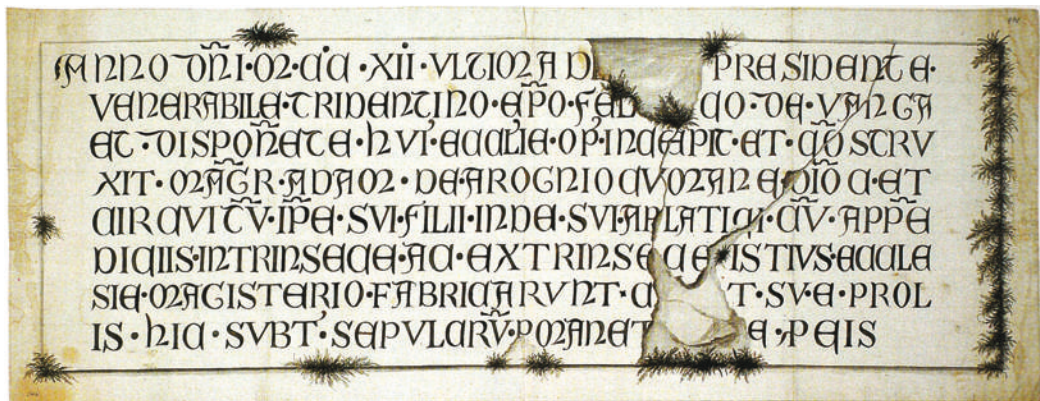 ANNO DN̄I·M·CC·XII·VLTIMA D PRESIDENTE·
VENERABILE·TRIDENTINO·EP̄O·FED CO·DE·VANGA
ET·DISPON̄ETE·HVI'·ECCL'IE·OP'·INCEPIT·ET·CŌSTRV
XIT·MAḠR·ADAM·DE·AROGNIO CVMANE·DIŌC·ET
CIRCVITV̄·IP̄E·SVI·FILII·INDE·SVI·APLATICI·CV̄·APPĒ
DICIIS·INTRINSECE·AC·EXTRINSECE·ISTIVS·ECCLE
SIE·MAGISTERIO·FABRICARVNT·C T·SVE·PROL
IS·HIC·SVBT'·SEPVLCRV̄·MANET E·P EIS